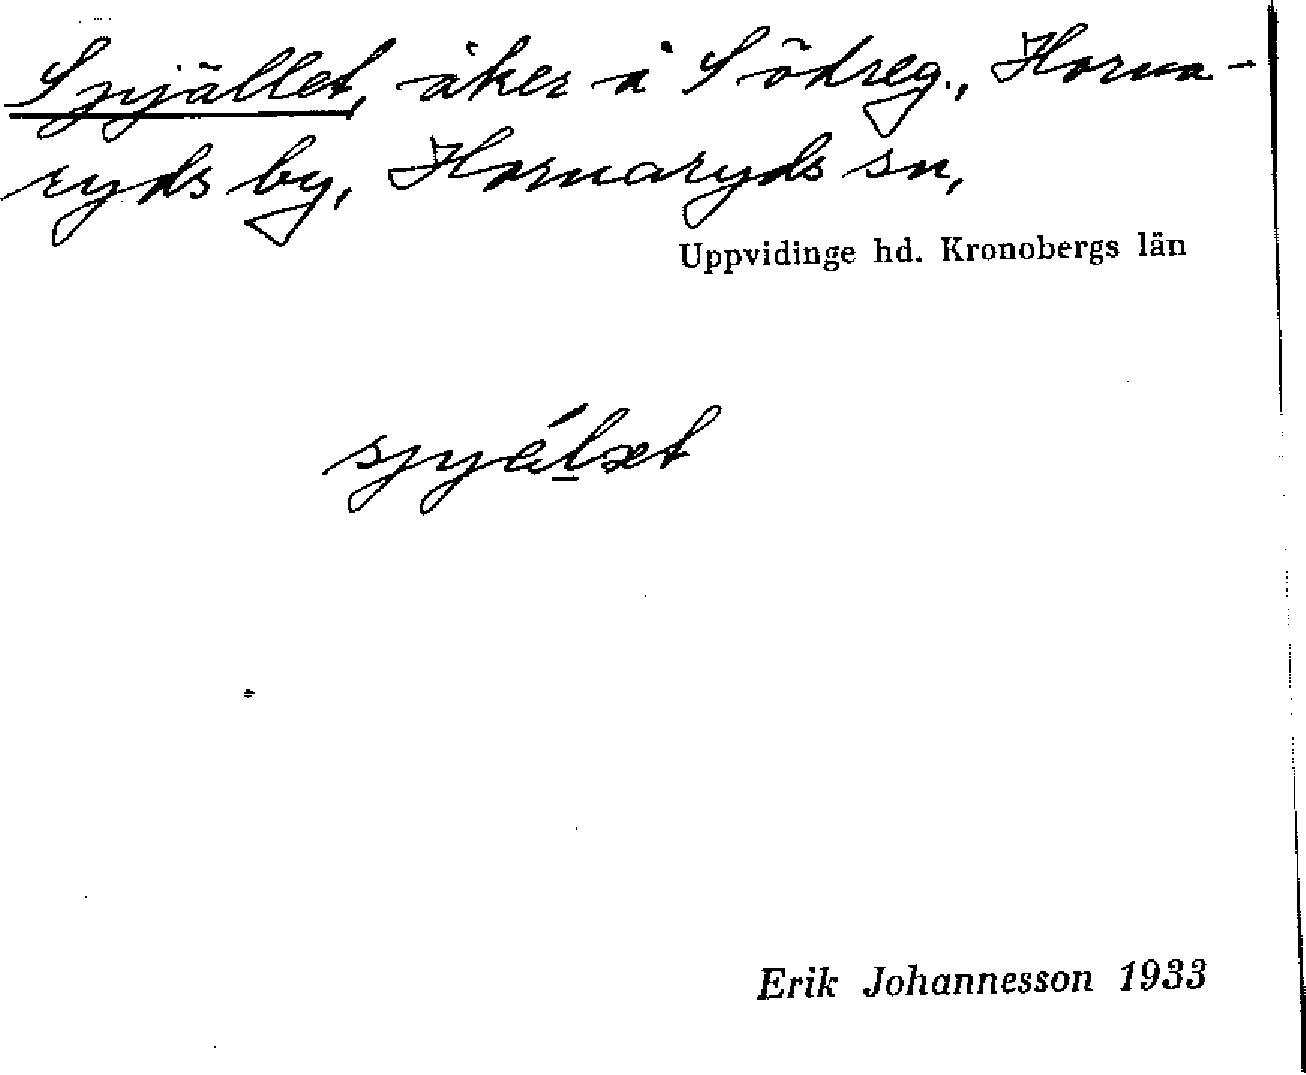 Spjället, åker å Södreg., Horna-
ryds by, Hornaryds sn,
Uppvidinge hd. Kronobergs län
Erik Johannesson 1933